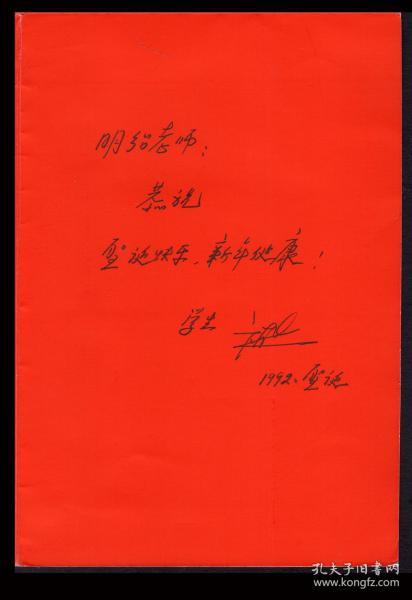 明绍老师：
恭祝
圣诞快乐，新年健康！
学生
1992、圣诞
孔夫子旧书网
www.kongfz.com